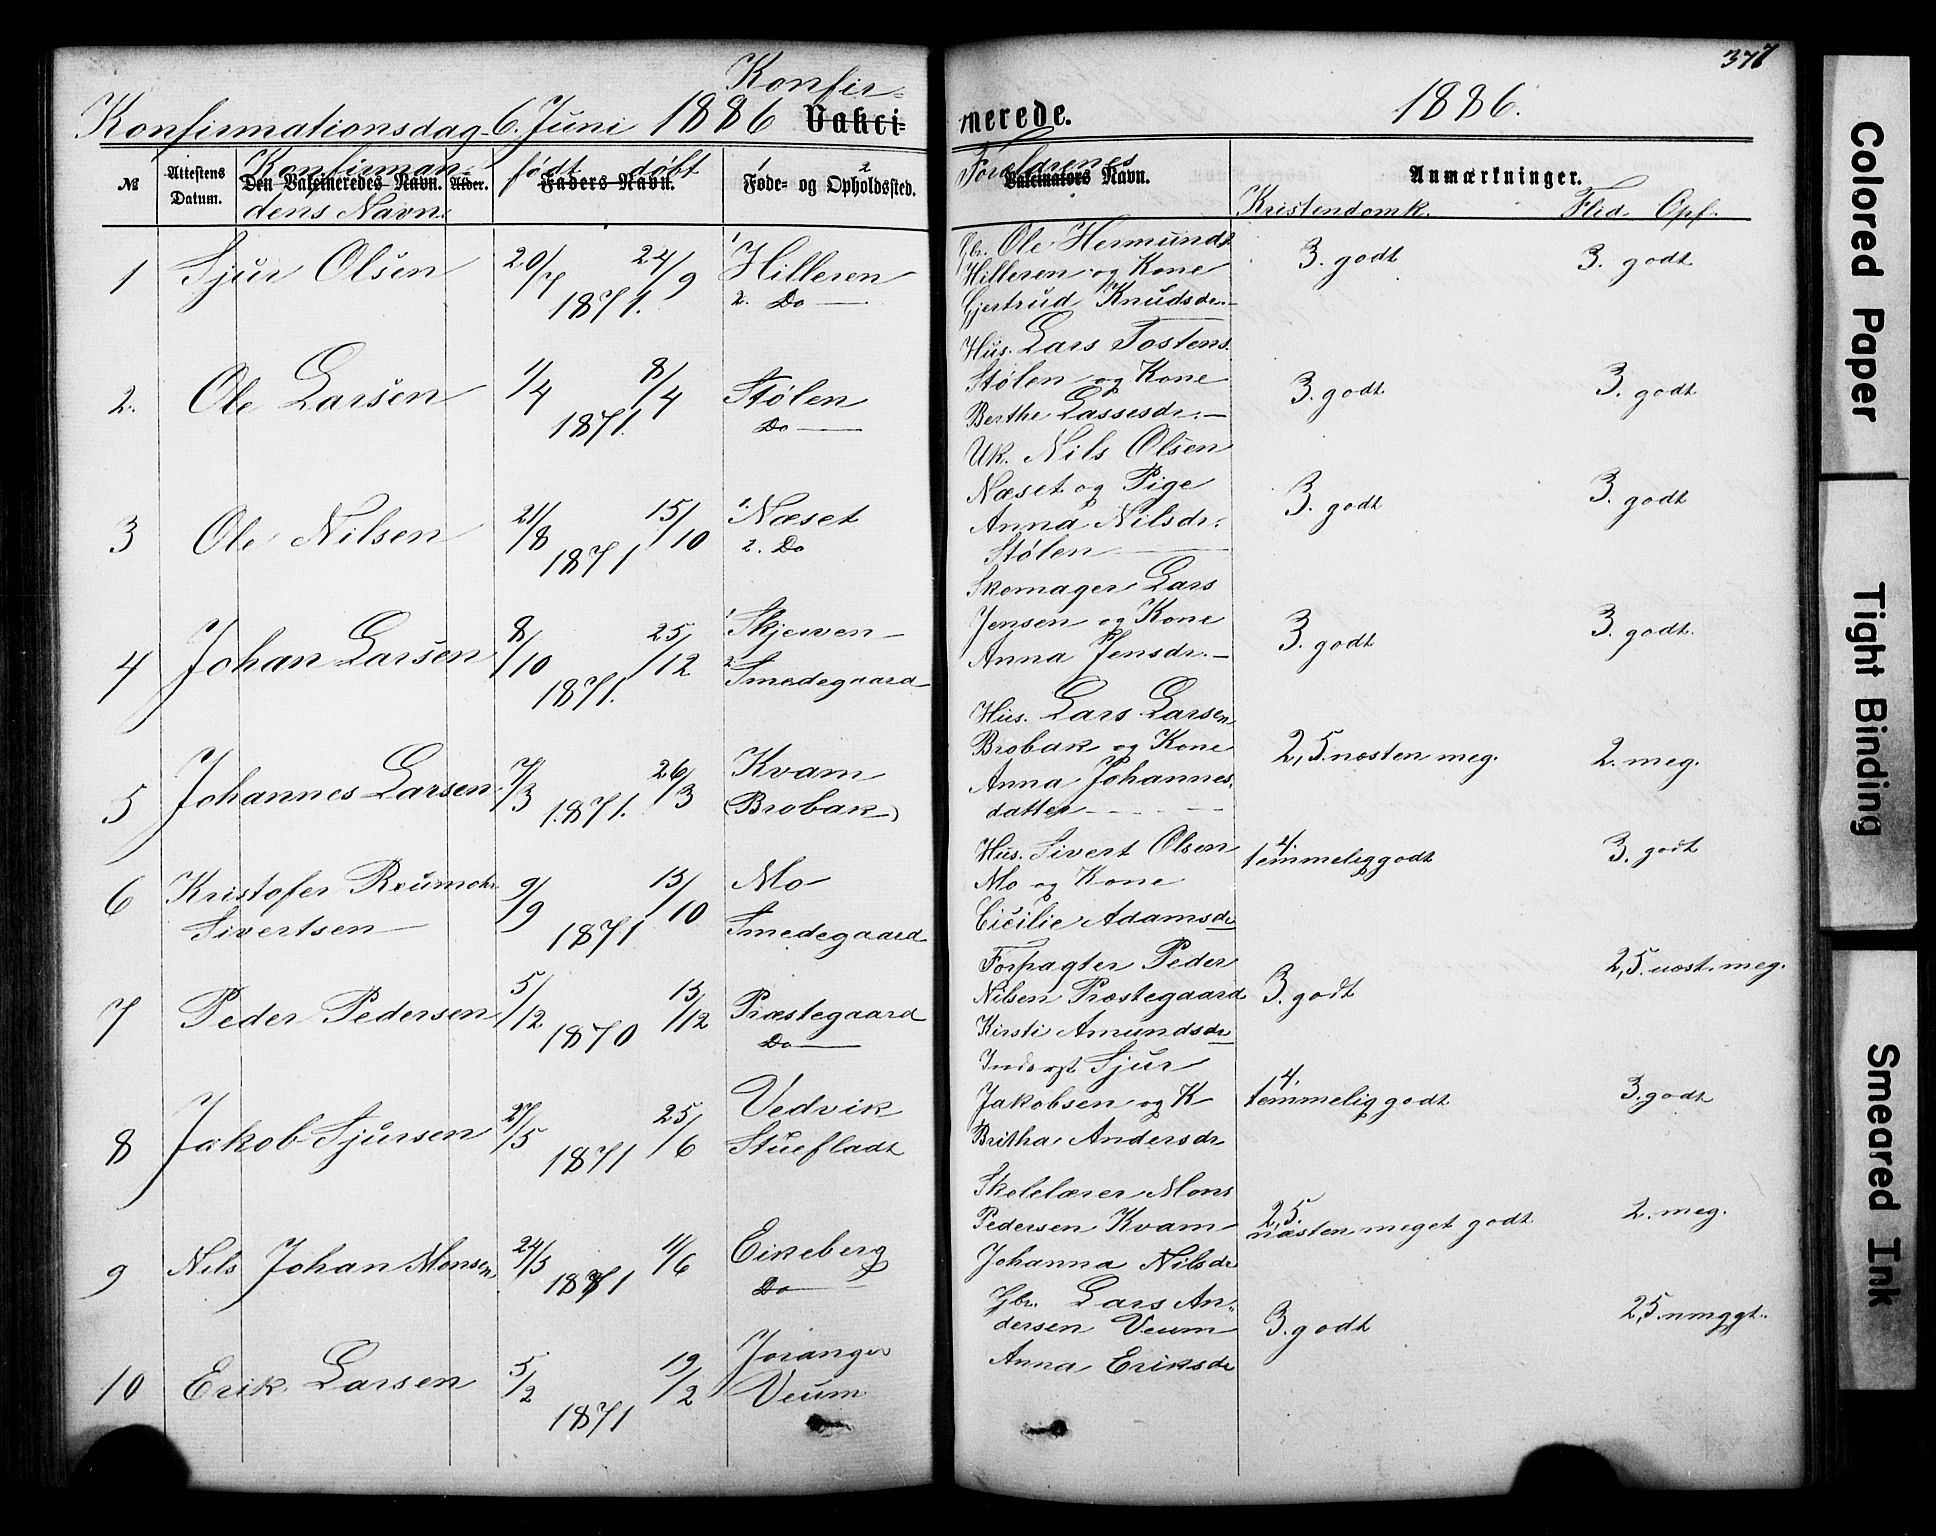 377
Konfir=
Konfirmationsdag 6. Juni 1886 Vakci=
merede.
1886.
№
Attestens Datum.
Den Vakcineredes Navn.
Konfirman=
dens Navn.
Alder.
Faders Navn.
født døbt
Føde- og Opholdssted.
2
Forældrenes
Vakcinators Navn.
Anmærkninger.
Kristendomk. Flid Opf.
1 Sjur Olsen 20/7 24/9 1871. 1 Hilleren
2. Do —
Gbr. Ole Hermunds
Hilleren og Kone
Gjertrud Knudsdr. —
3. godt 3. godt
2. Ole Larsen 1/4 8/4 1871. Stølen
Do —
Hus. Lars Tostens.
Stølen og Kone
Berthe Lassesdr. —
3. godt 3. godt
3 Ole Nilsen 21/8 15/10 1871 1. Næset
2. Do
Uk. Nils Olsen
Næset og Pige
Anna Nilsdr.
Stølen —
3. godt 3. godt
4 Johan Larsen 8/10 25/12 1871. 1 Skjerven —
2 Smedegaard
Skomager Lars
Jensen og Kone
Anna Jensdr. —
3. godt 3. godt.
5 Johannes Larsen 7/3 26/3 1871. Kvam
(Brobak)
Hus. Lars Larsen
Brobak og Kone
Anna Johannes.
datter — — —
2,5. næsten meg. 2. meg.
6 Kristofer
Sivertsen — 9/9 15/10 1871 Mo
Smedegaard
Hus. Sivert Olsen
Mo og Kone
Cicilie Adamsdr
4.
temmelig godt 3. godt
7 Peder Pedersen 5/12 13/12 1870 Præstegaard
Do —
Forpagter Peder
Nilsen Præstegaard
Kirsti Amundsdr
3. godt 2,5. næst. meg.
8 Jakob Sjursen 27/5 25/6 1871 Vedvik
Stuefladt
Sjur
Jakobsen og K
Britha Andersdr
4.
temmelig godt 3. godt
9 Nils Johan Monsen 24/3 11/6 1871 Eikeberg
Do —
Skolelærer Mons
Pedersen Kvam
Johanna Nilsdr
2,5.
næsten meget godt 2. meg.
10 Erik Larsen 5/2 19/2 1871 Joranger
Veum
Gbr. Lars An=
dersen Veum
Anna Eriksdr
3. godt 2,5. nmggt.
Colored Paper
Tight Binding
Smeared Ink